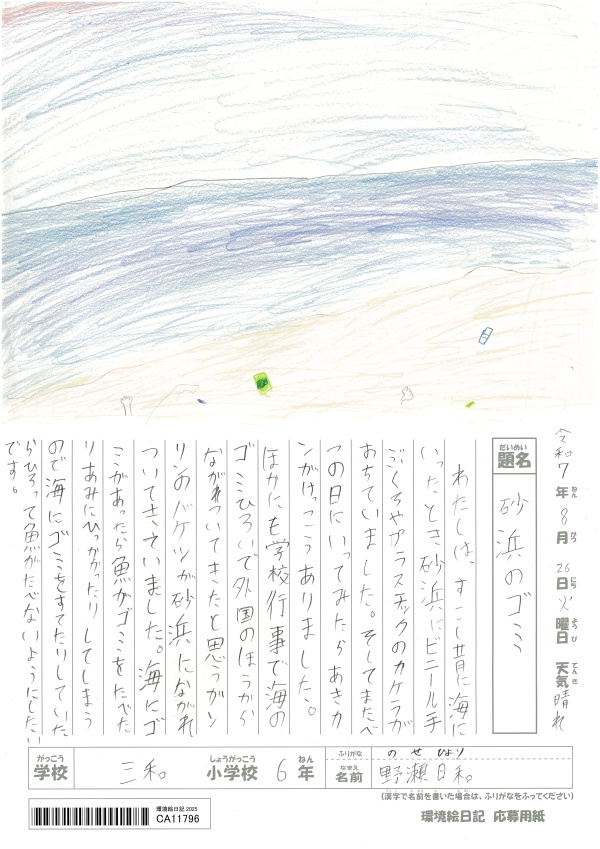 令和7年8月26日火曜日 天気晴れ
だいめい
題名
砂浜のゴミ
わたしは、すこし昔に海に
いったとき砂浜にビニール手
ぶくろやプラスチックのカケラが
おちていました。そしてまたべ
つの日にいってみたらあきカ
ンがけっこうありました。
ほかにも学校行事で海の
ゴミひろいで外国のほうから
ながれついてきたと思うガソ
リンのバケツが砂浜にながれ
ついてきていました。海にゴ
ミがあったら魚がゴミをたべた
りあみにひっかかったりしてしまう
ので海にゴミをすてたりしていた
らひろって魚がたべないようにしたい
です。
がっこう
学校
三和
しょうがっこう
小学校
6
ねん
年
ふりがな
のせ ひより
なまえ
名前
野瀬日和
(漢字で名前を書いた場合は、ふりがなをふってください)
環境絵日記 2025
CA11796
環境絵日記 応募用紙